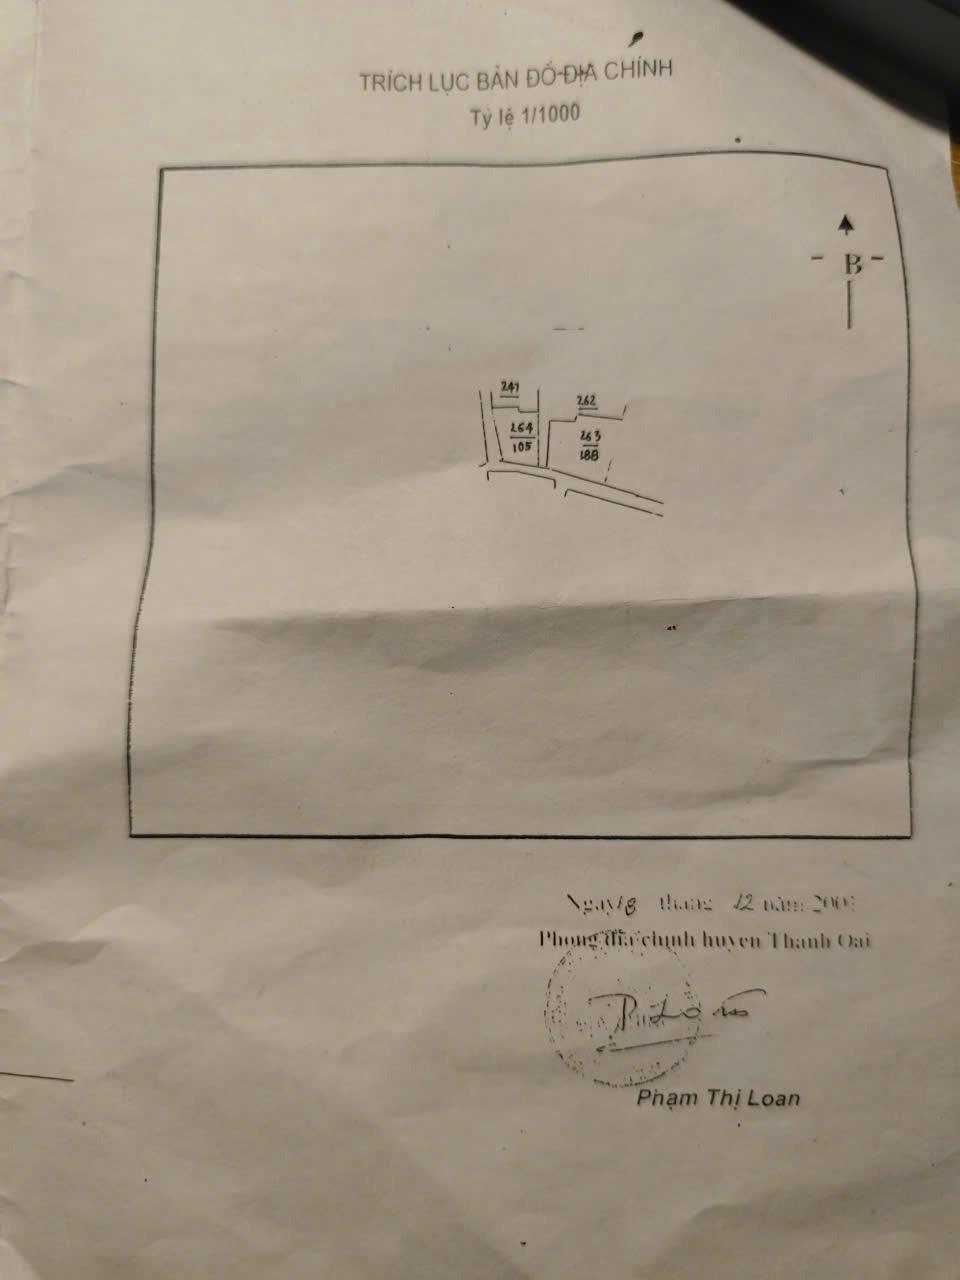 TRÍCH LỤC BẢN ĐỒ ĐỊA CHÍNH
Tỷ lệ 1/1000
B
241
262
264
105
263
188
Ngày 18 tháng 12 năm
Phòng địa chính huyện Thanh Oai
Phạm Thị Loan